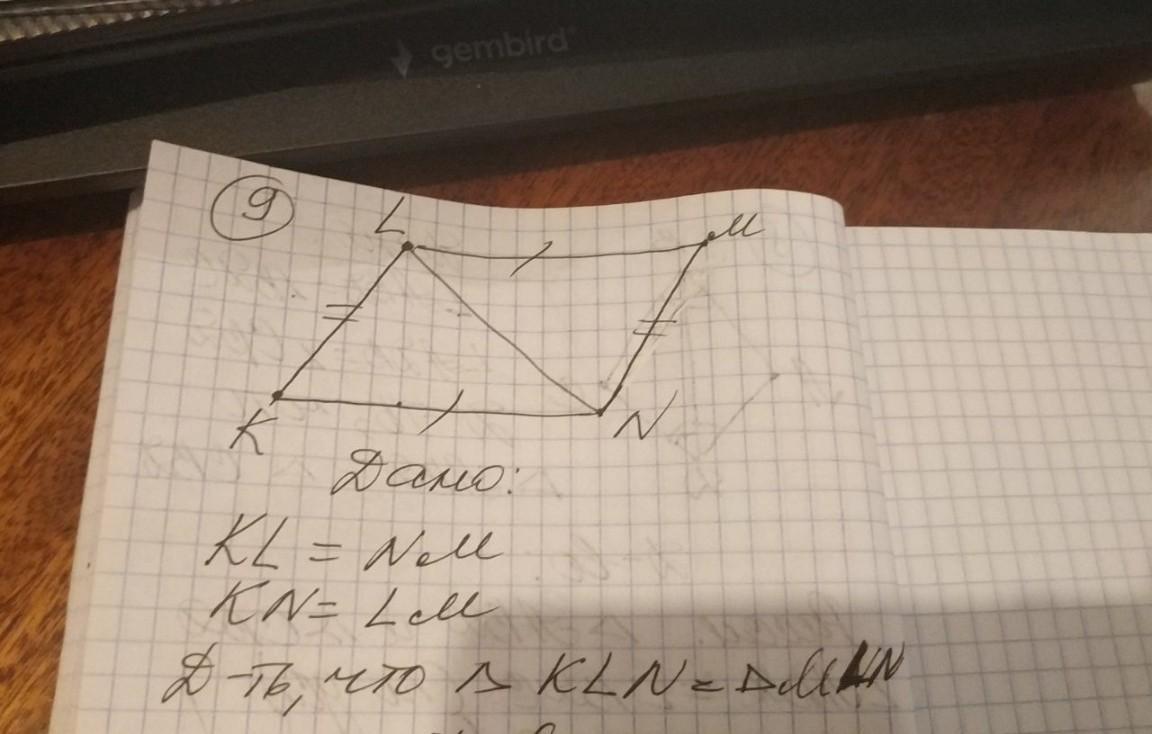 gembird
9
L M
K N
Дано:
KL = NM
KN = LM
Д-ть, что △ KLN = △MLN